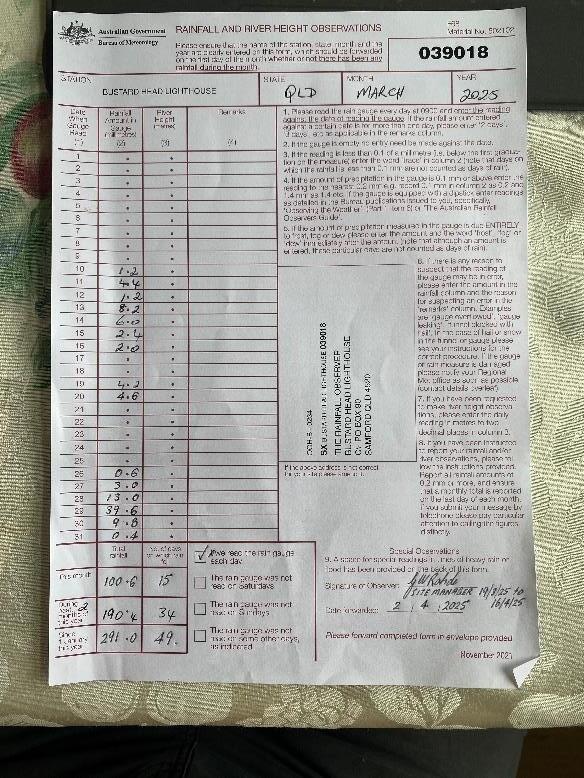 Australian Government
Bureau of Meteorology
RAINFALL AND RIVER HEIGHT OBSERVATIONS
Please ensure that the name of the station, state, month and the
year are clearly entered on this form, which should be forwarded
on the first day of the month whether or not there has been any
rainfall during the month.
039018
STATION
BUSTARD HEAD LIGHTHOUSE
STATE
QLD
MONTH
MARCH
YEAR
2025
Date When Gauge Read
Rainfall Amount in Gauge (millimetres)
River Height (metres)
Remarks
(1) (2) (3) (4)
1
2
3
4
5
6
7
8
9
10 1.2
11 4.4
12 1.2
13 8.2
14 6.0
15 2.4
16 2.0
17
18
19 4.2
20 4.6
21
22
23
24
25
26 0.6
27 3.0
28 13.0
29 39.6
30 9.8
31 0.4
1. Please read the rain gauge every day at 0900 and enter the reading
against the date of reading the gauge. If the rainfall amount entered
against a certain date is for more than one day, please enter '2 days',
'3 days', etc as applicable in the remarks column.
2. If the gauge is empty no entry need be made against the date.
3. If the reading is less than 0.1 of a millimetre (i.e. below the first gradua-
tion on the measure) enter the word 'trace' in column 2 (note that days on
which the rainfall is less than 0.1 mm are not counted as days of rain).
4. If the amount of precipitation in the gauge is 0.1 mm or above enter the
reading to the nearest 0.2 mm e.g. record 0.1 mm in column 2 as 0.2 and
1.4 mm as 1.4 etc. If the gauge is equipped with a dipstick enter readings
as detailed in the Bureau publications issued to you, specifically,
'Observing the Weather' (Part 1 Item 6) or 'The Australian Rainfall
Observers Guide'.
5. If the amount of precipitation measured in the gauge is due ENTIRELY
to frost, fog or dew please enter the amount and the word 'frost', 'fog' or
'dew' immediately after the amount (note that although an amount is
entered, these particular days are not counted as days of rain).
6. If there is any reason to
suspect that the reading of
the gauge may be in error,
please enter the amount in the
rainfall column and the reason
for suspecting an error in the
'remarks' column. Examples
are 'gauge overflowed', 'gauge
leaking', 'funnel blocked with
hail'. In the case of hail or snow
in the funnel or gauge please
see your instructions for the
correct procedure. If the gauge
or rain measure is damaged
please notify your Regional
Met office as soon as possible
(contact details overleaf).
7. If you have been requested
to make river height observa-
tions, please enter the daily
reading in metres to two
decimal places in column 3.
8. If you have been instructed
to report your rainfall and/or
river observations, please fol-
low the instructions provided.
Report all rainfall amounts of
0.2 mm or more, and ensure
that a monthly total is reported
on the last day of each month.
If you submit your message by
telephone please pay particular
attention to calling the figures
distinctly.
BUSTARD HEAD LIGHTHOUSE 039018
THE RAINFALL OBSERVER
BUSTARD HEAD LIGHTHOUSE
C/- PO BOX 90
SAMFORD QLD 4520
If the above address is not correct
Total rainfall
No. of days on which rain fell
This month 100.6 15
During 2 months of this year 190.4 34
Since 1 January this year 291.0 49.
✓ If we read the rain gauge each day
The rain gauge was not read on Saturdays
The rain gauge was not read on Sundays
The rain gauge was not read on some other days, as indicated
Special Observations
9. A space for special readings in times of heavy rain or
flood has been provided on the back of this form.
Signature of Observer:
SITE MANAGER 19/3/25 to
16/4/25
Date forwarded: 2 4 2025
Please forward completed form in envelope provided
November 2021